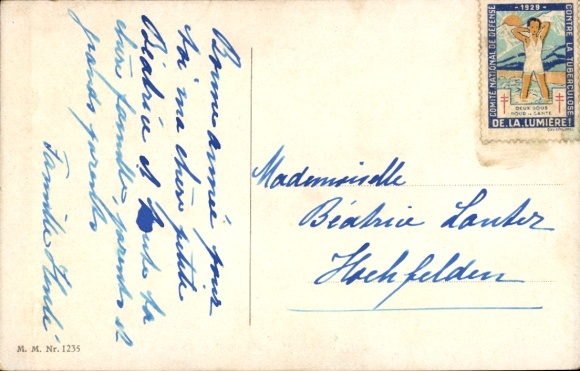 Bonne année pour
toi ma chère petite
Béatrice et toute ta
chère famille, parents et
grands parents
Famille
Mademoiselle
Béatrice Lanter
Hochfelden
COMITÉ NATIONAL DE DÉFENSE
- 1929 -
CONTRE LA TUBERCULOSE
DEUX SOUS
POUR LA SANTÉ
DE LA LUMIÈRE!
M. M. Nr. 1235